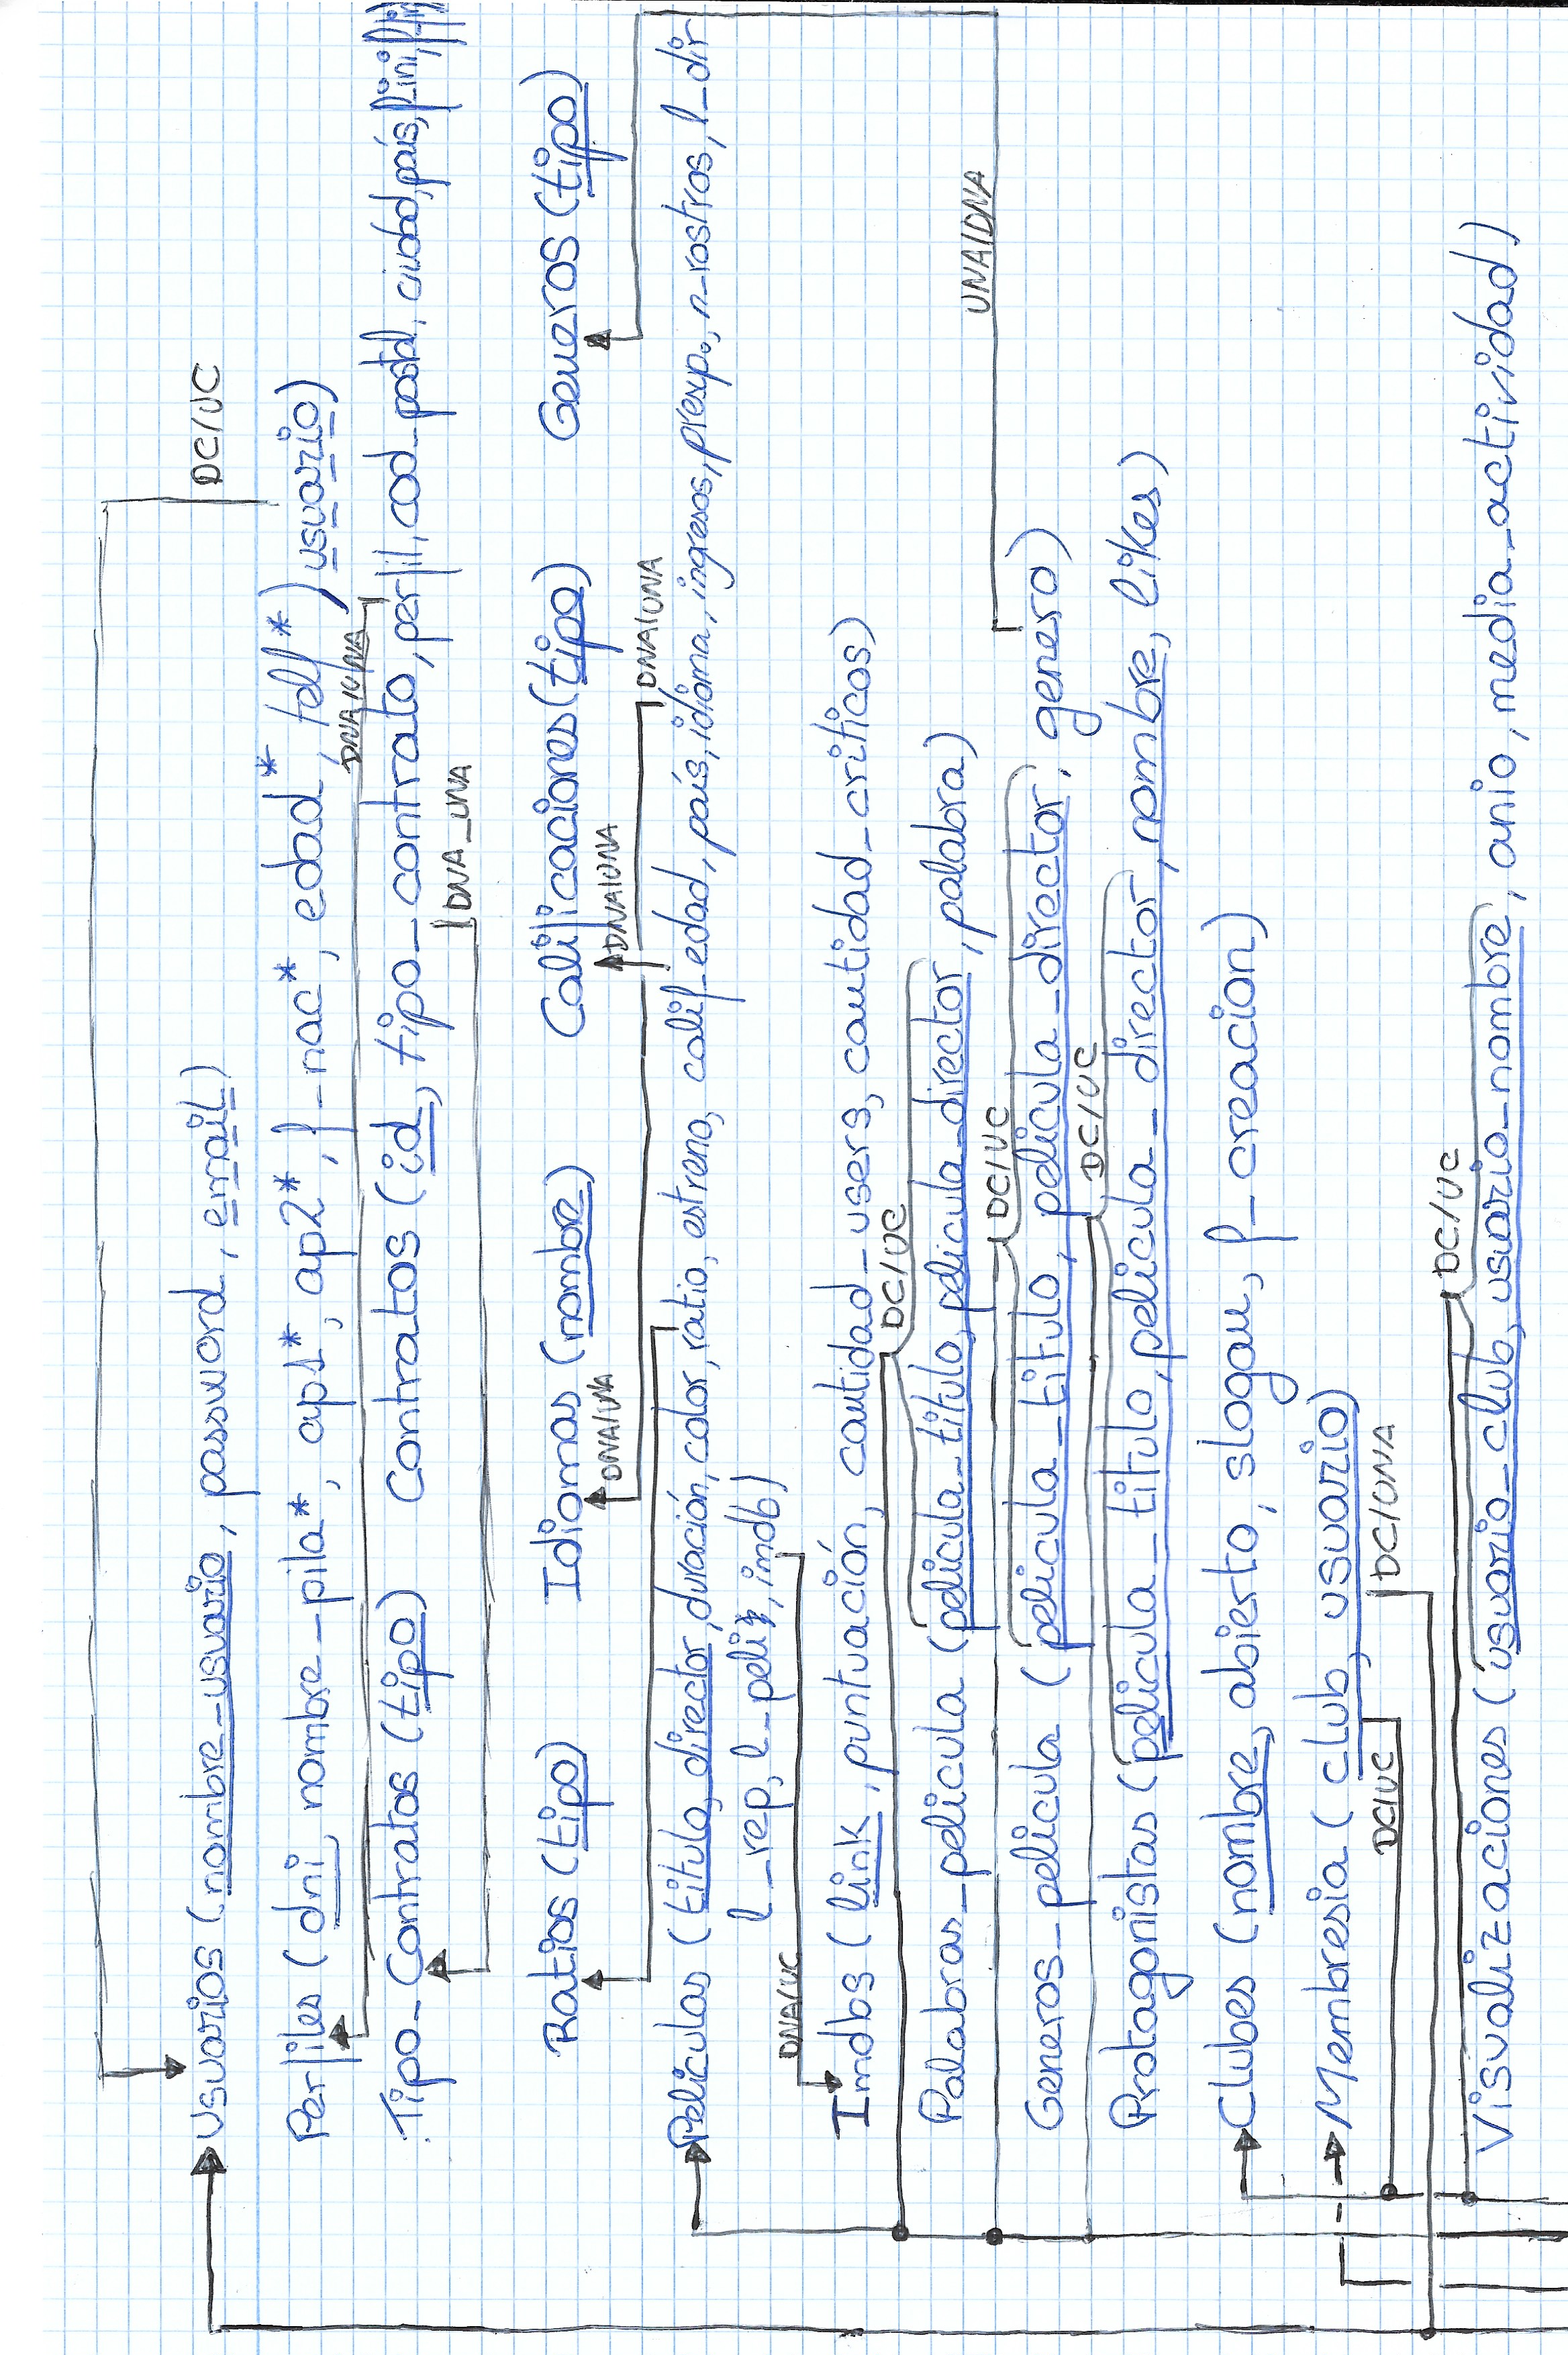 DC/UC
Usuarios (nombre_usuario, password, email)
Perfiles (dni, nombre_pila*, ap1*, ap2*, f_nac*, edad*, telf*) usuario)
DNA/UNA
Tipo_Contratos (tipo) Contratos (id, tipo_contrato, perfil, cod_postal, ciudad, país, f_ini,
DNA_UNA
Ratios (tipo) Idiomas (nombre) Calificaciones (tipo) Generos (tipo)
DNA/UNA DNA/UNA DNA/UNA
Peliculas (titulo, director, duración, color, ratio, estreno, calif_edad, país, idioma, ingresos, presup., n_rostros, l_dir
l_rep, l_peli, imdb)
DNA/UC
Imdbs (link, puntuación, cantidad_users, cantidad_criticos)
DC/UC
Palabras_pelicula (pelicula_titulo, pelicula_director, palabra)
UNA/DNA
DC/UC
Generos_pelicula (pelicula_titulo, pelicula_director, genero)
DC/UC
Protagonistas (pelicula_titulo, pelicula_director, nombre, likes)
Clubes (nombre, abierto, slogan, f_creacion)
Membresia (club, usuario)
DC/UC DC/UNA
DC/UC
Visualizaciones (usuario_club, usuario_nombre, anio, media_actividad)